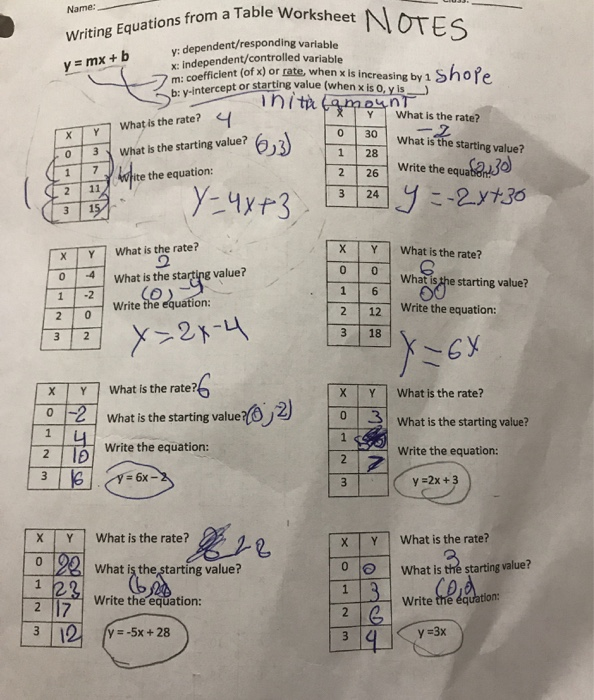 Name:
Writing Equations from a Table Worksheet NOTES
y = mx + b
y: dependent/responding variable
x: independent/controlled variable
m: coefficient (of x) or rate, when x is increasing by 1 Shope
b: y-intercept or starting value (when x is 0, y is __)
X Y
0 3
1 7
2 11
3 15
What is the rate? 4
What is the starting value? (0,3)
Write the equation:
Y=4x+3
X Y
0 30
1 28
2 26
3 24
What is the rate?
-2
What is the starting value?
Write the equation:
y = -2x+30
X Y
0 -4
1 -2
2 0
3 2
What is the rate?
2
What is the starting value?
(0,-4
Write the equation:
Y=2x-4
X Y
0 0
1 6
2 12
3 18
What is the rate?
6
What is the starting value?
00
Write the equation:
Y=6x
X Y
0 -2
1 4
2 10
3 16
What is the rate? 6
What is the starting value? (0,2)
Write the equation:
y = 6x – 2
X Y
0 3
1
2 7
3
What is the rate?
What is the starting value?
Write the equation:
y =2x + 3
X Y
0 28
1 23
2 17
3 12
What is the rate? 28
What is the starting value?
Write the equation:
y = -5x + 28
X Y
0 0
1 3
2 6
3 4
What is the rate?
3
What is the starting value?
Write the equation:
y =3x